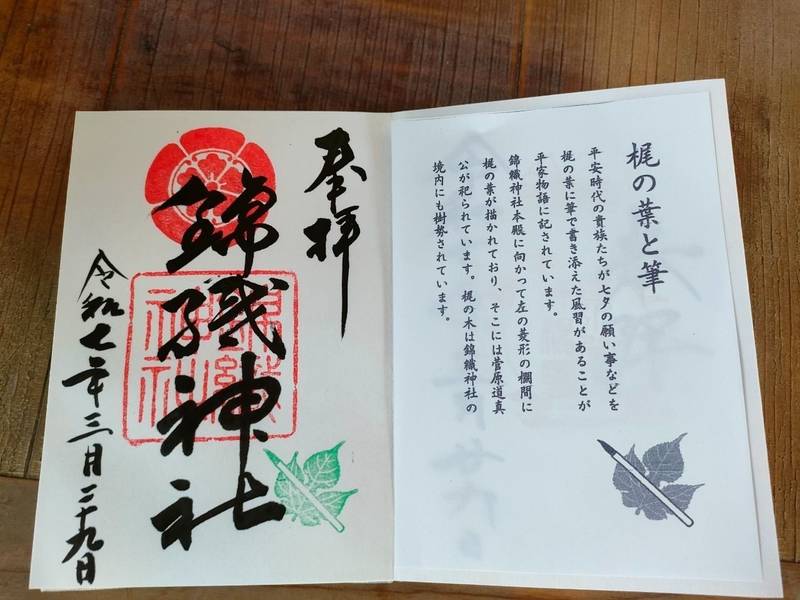 梶の葉と筆
平安時代の貴族たちが七夕の願い事などを
梶の葉に筆で書き添えた風習があることが
平家物語に記されています。
錦織神社本殿に向かって左の菱形の欄間に
梶の葉が描かれており、そこには菅原道真
公が祀られています。梶の木は錦織神社の
境内にも樹勢されています。
奉拝
錦織神社
錦織
神社
令和七年三月二十九日